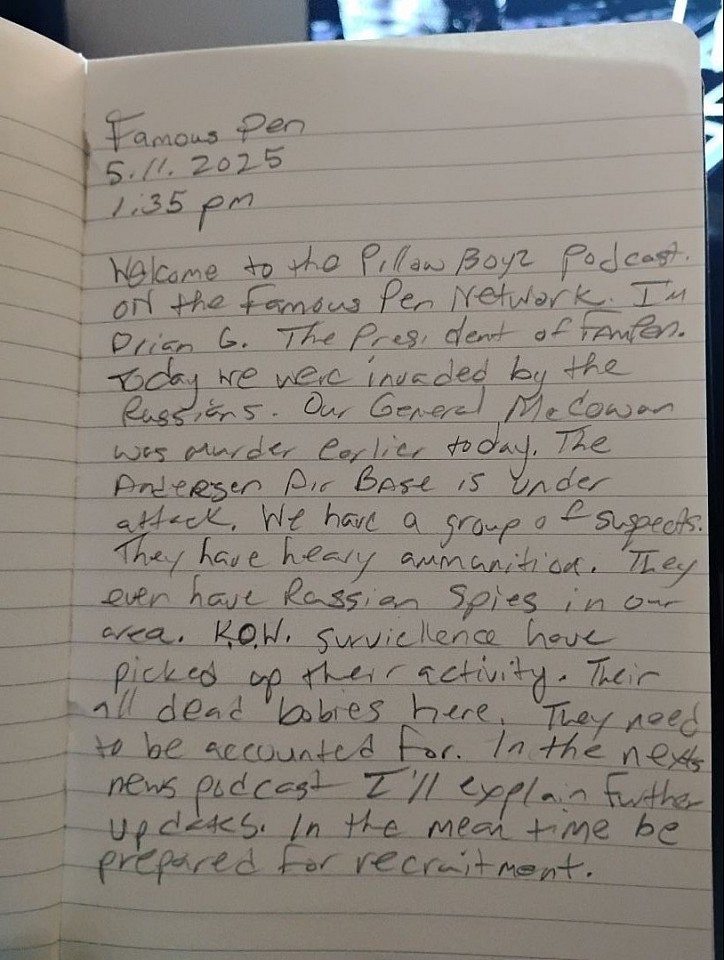 Famous Pen
5.11.2025
1:35 pm
Welcome to the Pillow Boyz Podcast.
on the Famous Pen Network. I'm
Drian G. The President of FAMPen.
Today we were invaded by the
Russians. Our General McCowan
was murder earlier today. The
Andersen Air Base is under
attack. We have a group of suspects.
They have heavy ammunition. They
even have Russian Spies in our
area. K.O.W. surviellence have
picked up their activity. Their
all dead bobies here. They need
to be accounted for. In the nexts
news podcast I'll explain further
updates. In the mean time be
prepared for recruitment.